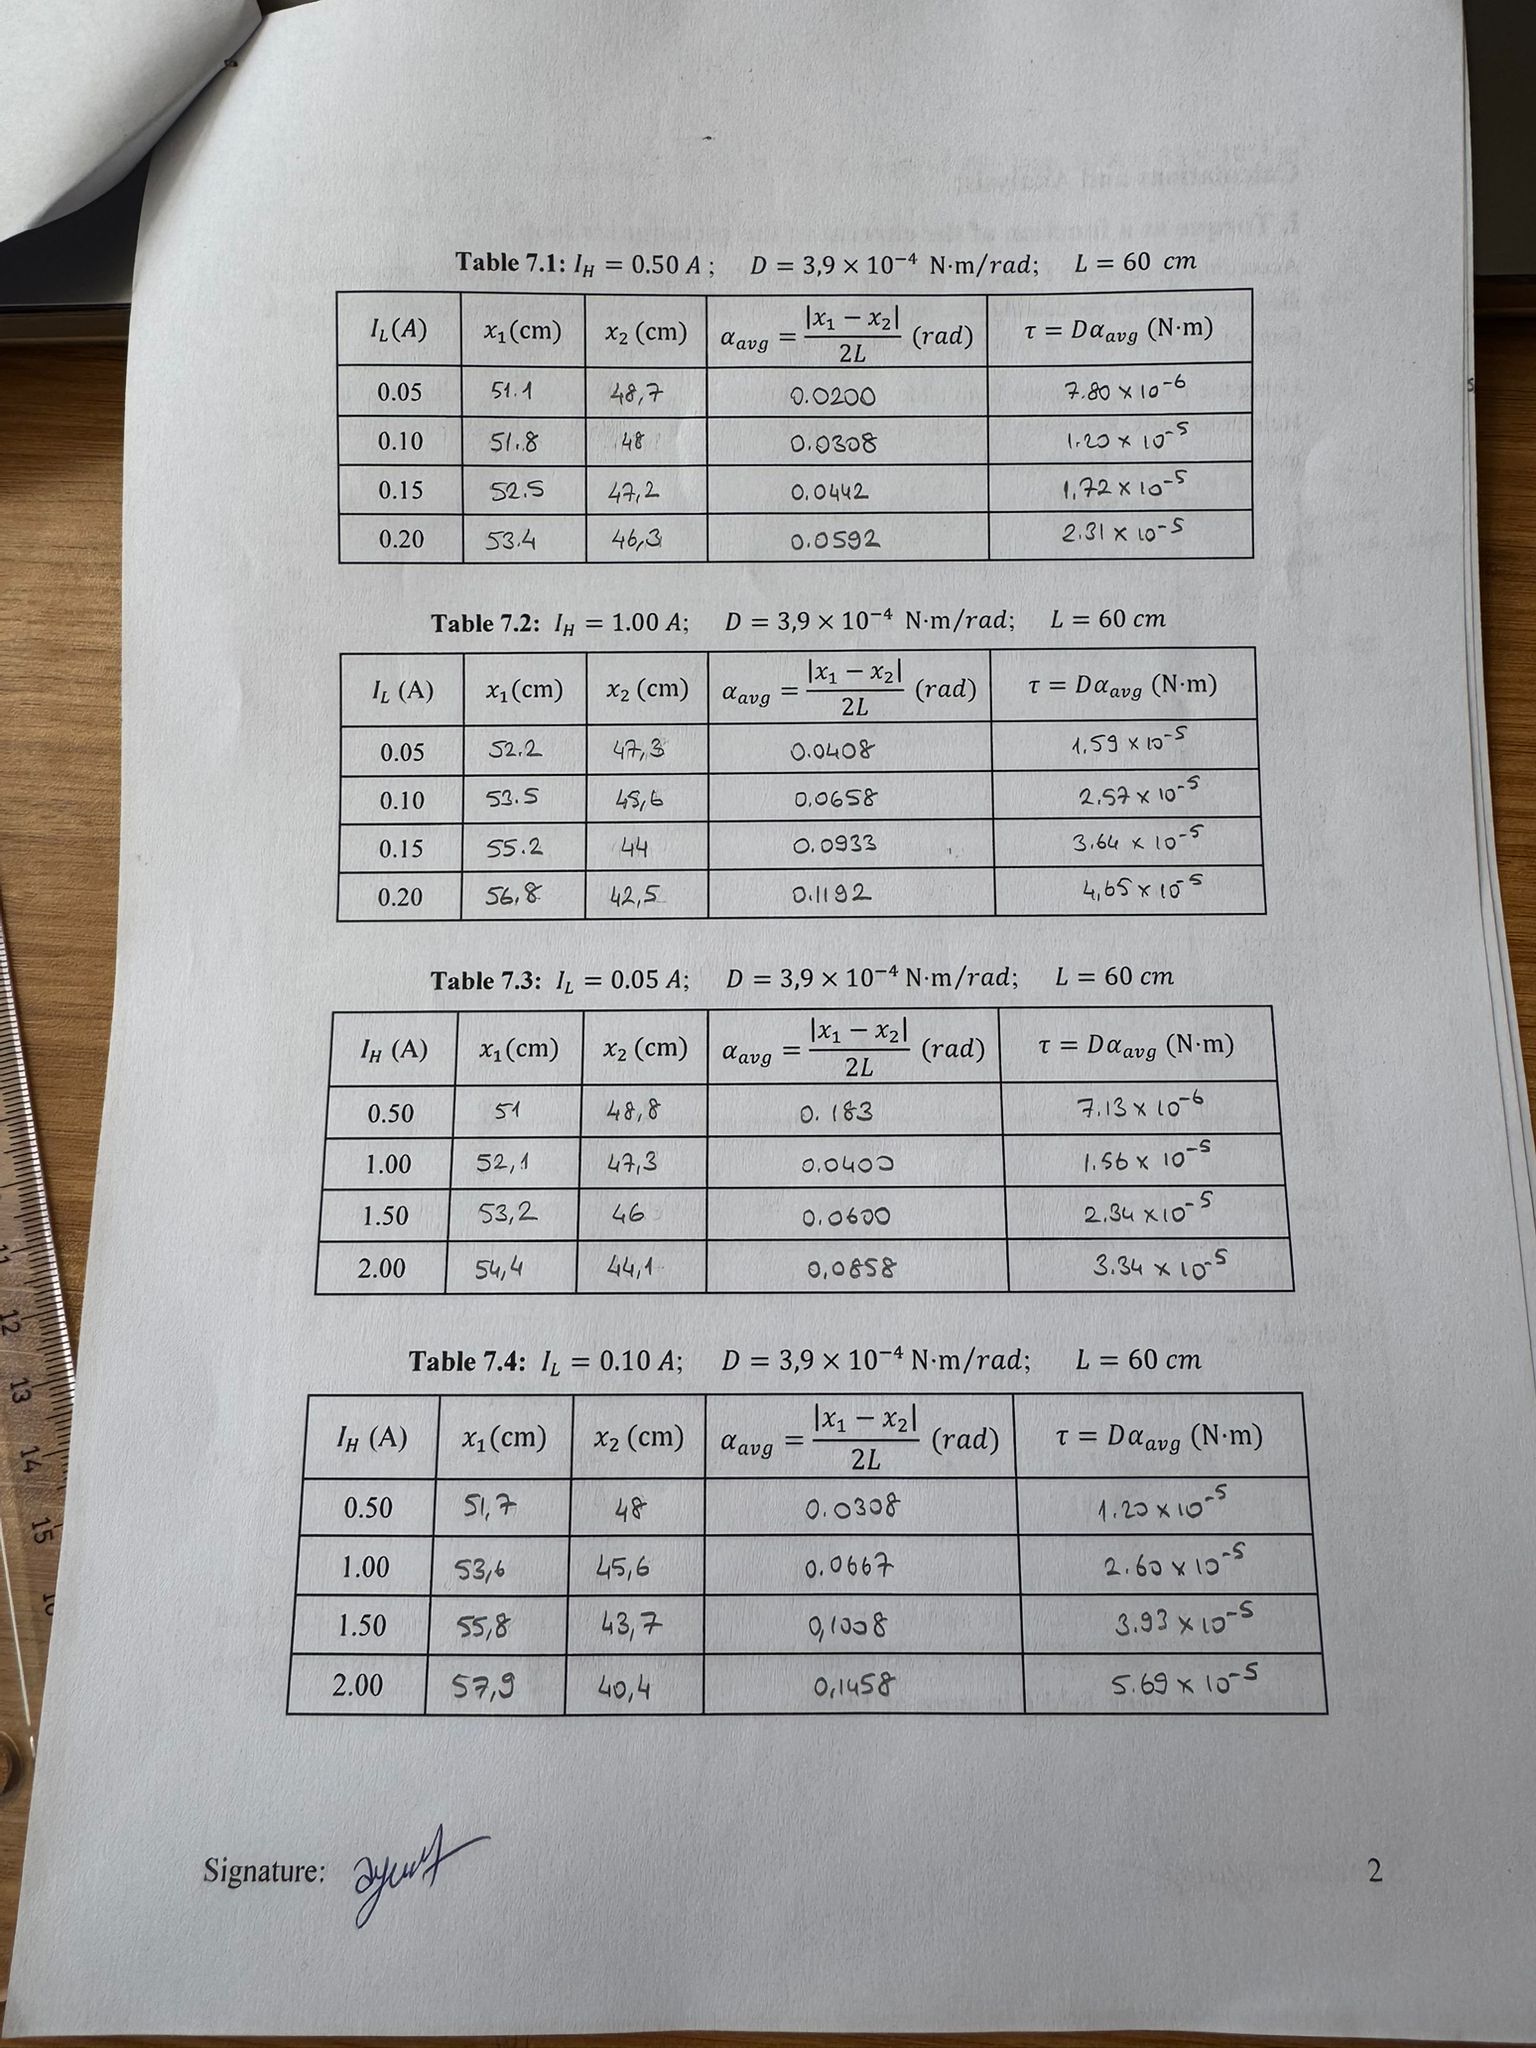 Table 7.1: I_H = 0.50 A ; D = 3,9 × 10⁻⁴ N·m/rad; L = 60 cm
I_L(A) x₁(cm) x₂ (cm) α_avg = |x₁ − x₂| / 2L (rad) τ = Dα_avg (N·m)
0.05 51.1 48,7 0.0200 7.80 × 10⁻⁶
0.10 51.8 48 0.0308 1.20 × 10⁻⁵
0.15 52.5 47,2 0.0442 1,72 × 10⁻⁵
0.20 53.4 46,3 0.0592 2.31 × 10⁻⁵
Table 7.2: I_H = 1.00 A; D = 3,9 × 10⁻⁴ N·m/rad; L = 60 cm
I_L (A) x₁(cm) x₂ (cm) α_avg = |x₁ − x₂| / 2L (rad) τ = Dα_avg (N·m)
0.05 52.2 47,3 0.0408 1.59 × 10⁻⁵
0.10 53.5 45,6 0,0658 2.57 × 10⁻⁵
0.15 55.2 44 0.0933 3.64 × 10⁻⁵
0.20 56,8 42,5 0.1192 4,65 × 10⁻⁵
Table 7.3: I_L = 0.05 A; D = 3,9 × 10⁻⁴ N·m/rad; L = 60 cm
I_H (A) x₁(cm) x₂ (cm) α_avg = |x₁ − x₂| / 2L (rad) τ = Dα_avg (N·m)
0.50 51 48,8 0.183 7.13 × 10⁻⁶
1.00 52,1 47,3 0.0400 1.56 × 10⁻⁵
1.50 53,2 46 0.0600 2.34 × 10⁻⁵
2.00 54,4 44,1 0,0858 3.34 × 10⁻⁵
Table 7.4: I_L = 0.10 A; D = 3,9 × 10⁻⁴ N·m/rad; L = 60 cm
I_H (A) x₁(cm) x₂ (cm) α_avg = |x₁ − x₂| / 2L (rad) τ = Dα_avg (N·m)
0.50 51,7 48 0.0308 1.20 × 10⁻⁵
1.00 53,6 45,6 0.0667 2.60 × 10⁻⁵
1.50 55,8 43,7 0,1008 3.93 × 10⁻⁵
2.00 57,9 40,4 0,1458 5.69 × 10⁻⁵
Signature:
2
11
12
13
14
15